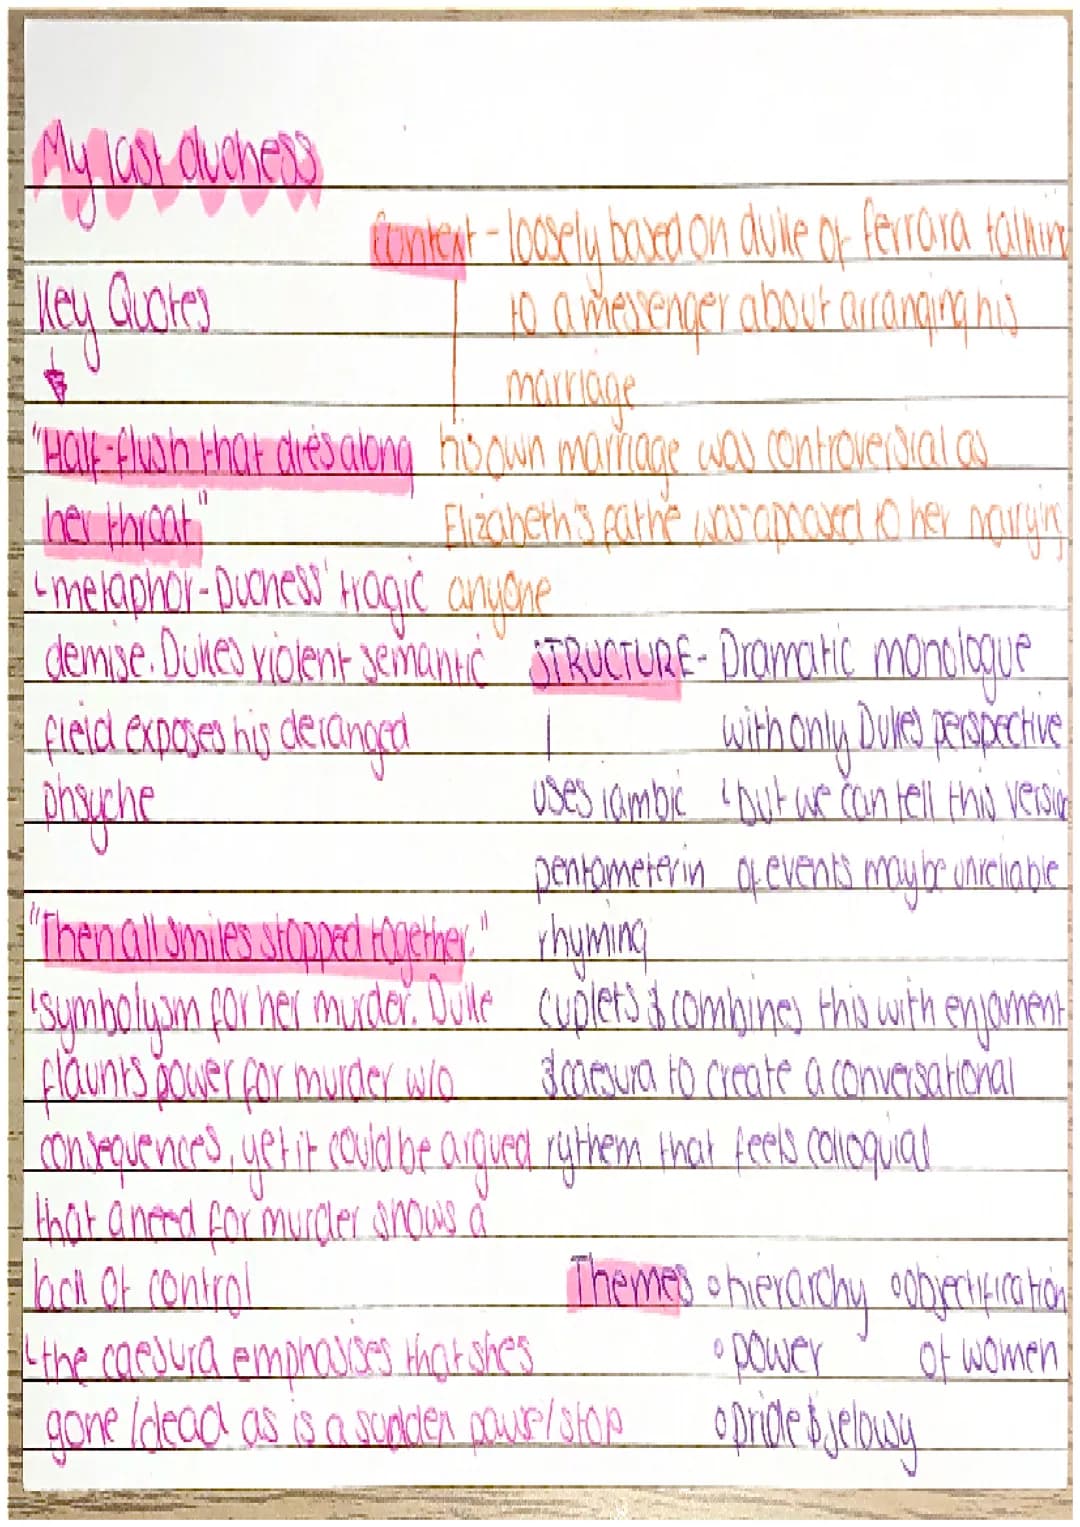 My last duchess
Context - loosely based on duke of ferrara talking
to a messenger about arranging his
marriage
his own marriage was controversial as
Elizabeth's pathe was apposed to her marrying
anyone
Key Quotes
"Half-flush that dies along
her throat"
metaphor - Duchess' tragic
demise. Dukes violent semantic
field exposes his deranged
phsyche
"Then all smiles stopped together."
symbolysm for her murder. Duke
flaunts power for murder w/o
consequences, yet it could be argued
that a need for murder shows a
lack of control
the caesura emphasises that shes
gone/dead as is a sudden pause/stop
STRUCTURE - Dramatic monologue
with only Dukes perspective
but we can tell this versio
of events may be unreliable
uses iambic
pentameter in
rhyming
cuplets & combines this with enjament
& caesura to create a conversational
rythem that feels coloquial
Themes
• hierarchy
• power
• pride & jelowsy
• objectification
of women